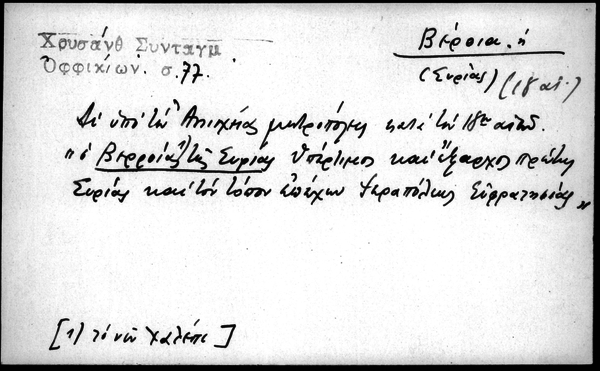 Χρυσάνθ Συνταγμ
Ὀφφικίων. σ. 77.
Βέροια. ἡ
(Συρίας) (18 αἰ.)
Αἱ ὑπὸ τὸν Ἀντιοχείας μητροπόλεις κατὰ τὸν 18ον αἰῶνα.
"ὁ Βερροίας¹⁾ τῆς Συρίας ὑπέρτιμος καὶ ἔξαρχος πρώτης
Συρίας καὶ τὸν τόπον ἐπέχων Ἱεραπόλεως Εὐφρατησίας"
[1) τὸ νῦν Χαλέπι]